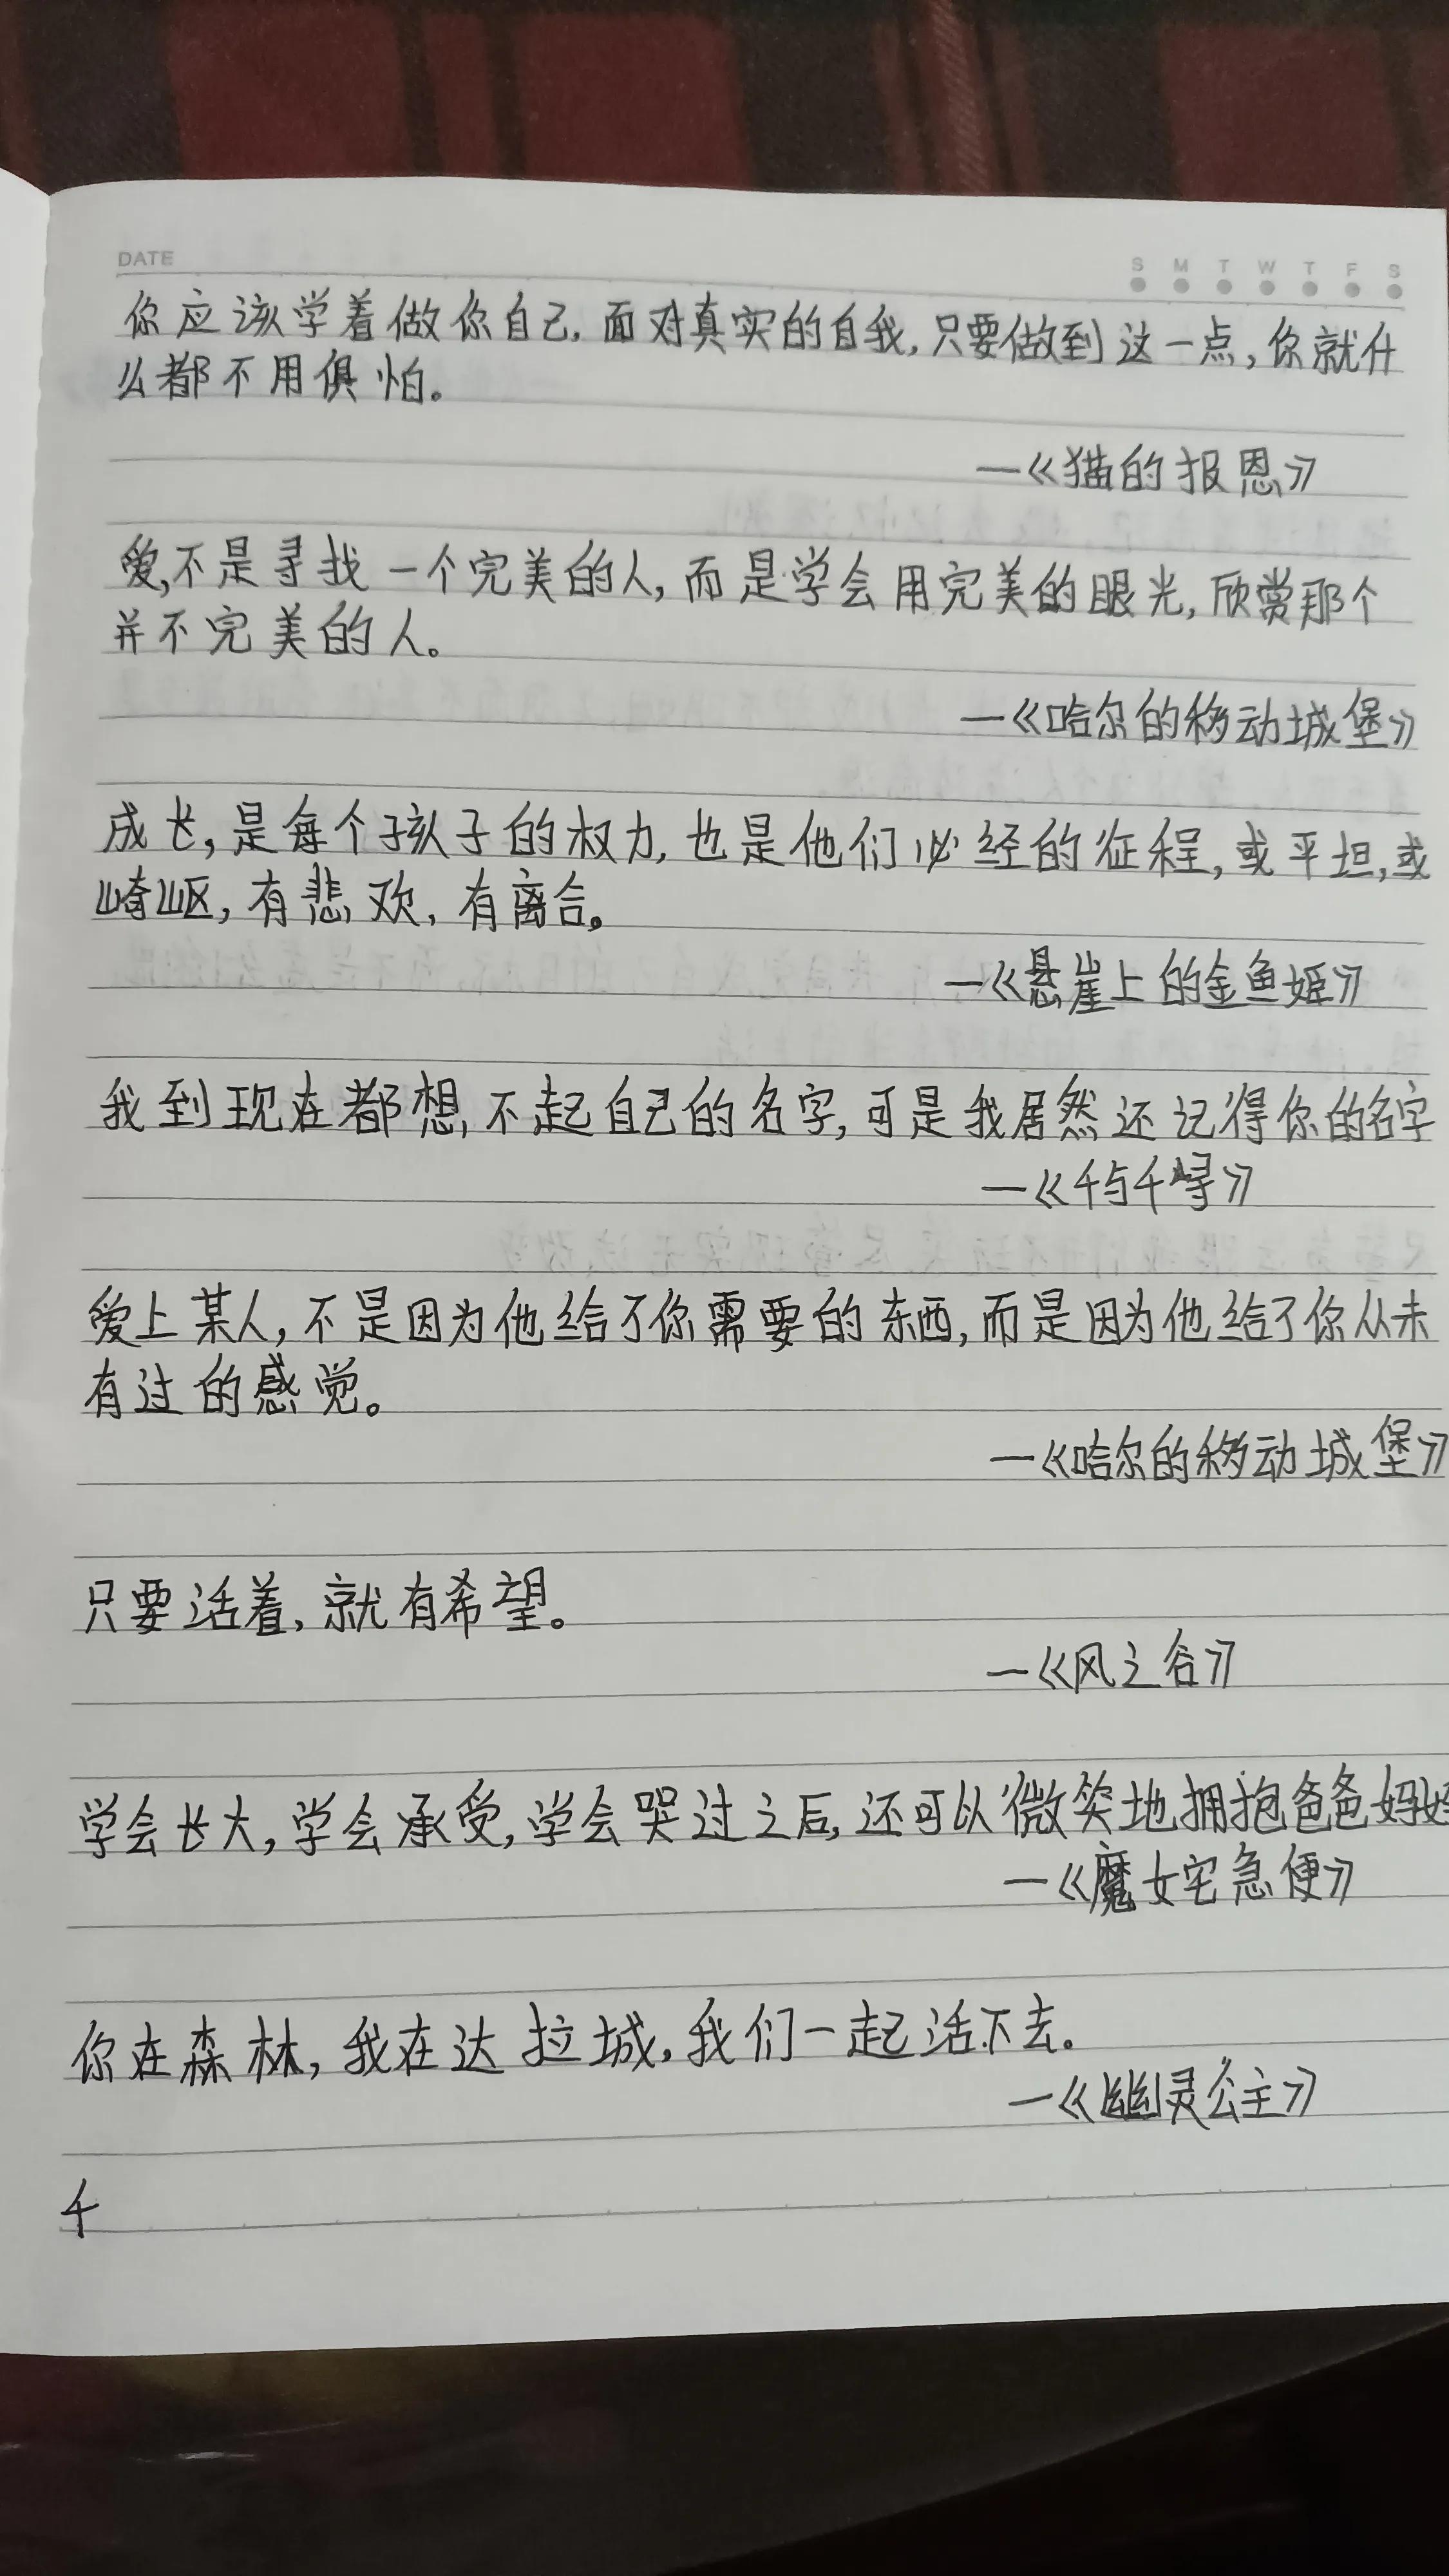 DATE
S M T W T F S
你应该学着做你自己,面对真实的自我,只要做到这一点,你就什
么都不用俱怕。
—《猫的报恩》
爱,不是寻找一个完美的人,而是学会用完美的眼光,欣赏那个
并不完美的人。
—《哈尔的移动城堡》
成长,是每个孩子的权力,也是他们必经的征程,或平坦,或
崎岖,有悲欢,有离合。
—《悬崖上的金鱼姬》
我到现在都想,不起自己的名字,可是我居然还记得你的名字
—《千与千寻》
爱上某人,不是因为他给了你需要的东西,而是因为他给了你从未
有过的感觉。
—《哈尔的移动城堡》
只要活着,就有希望。
—《风之谷》
学会长大,学会承受,学会哭过之后,还可以微笑地拥抱爸爸妈妈
—《魔女宅急便》
你在森林,我在达拉城,我们一起活下去。
—《幽灵公主》
千